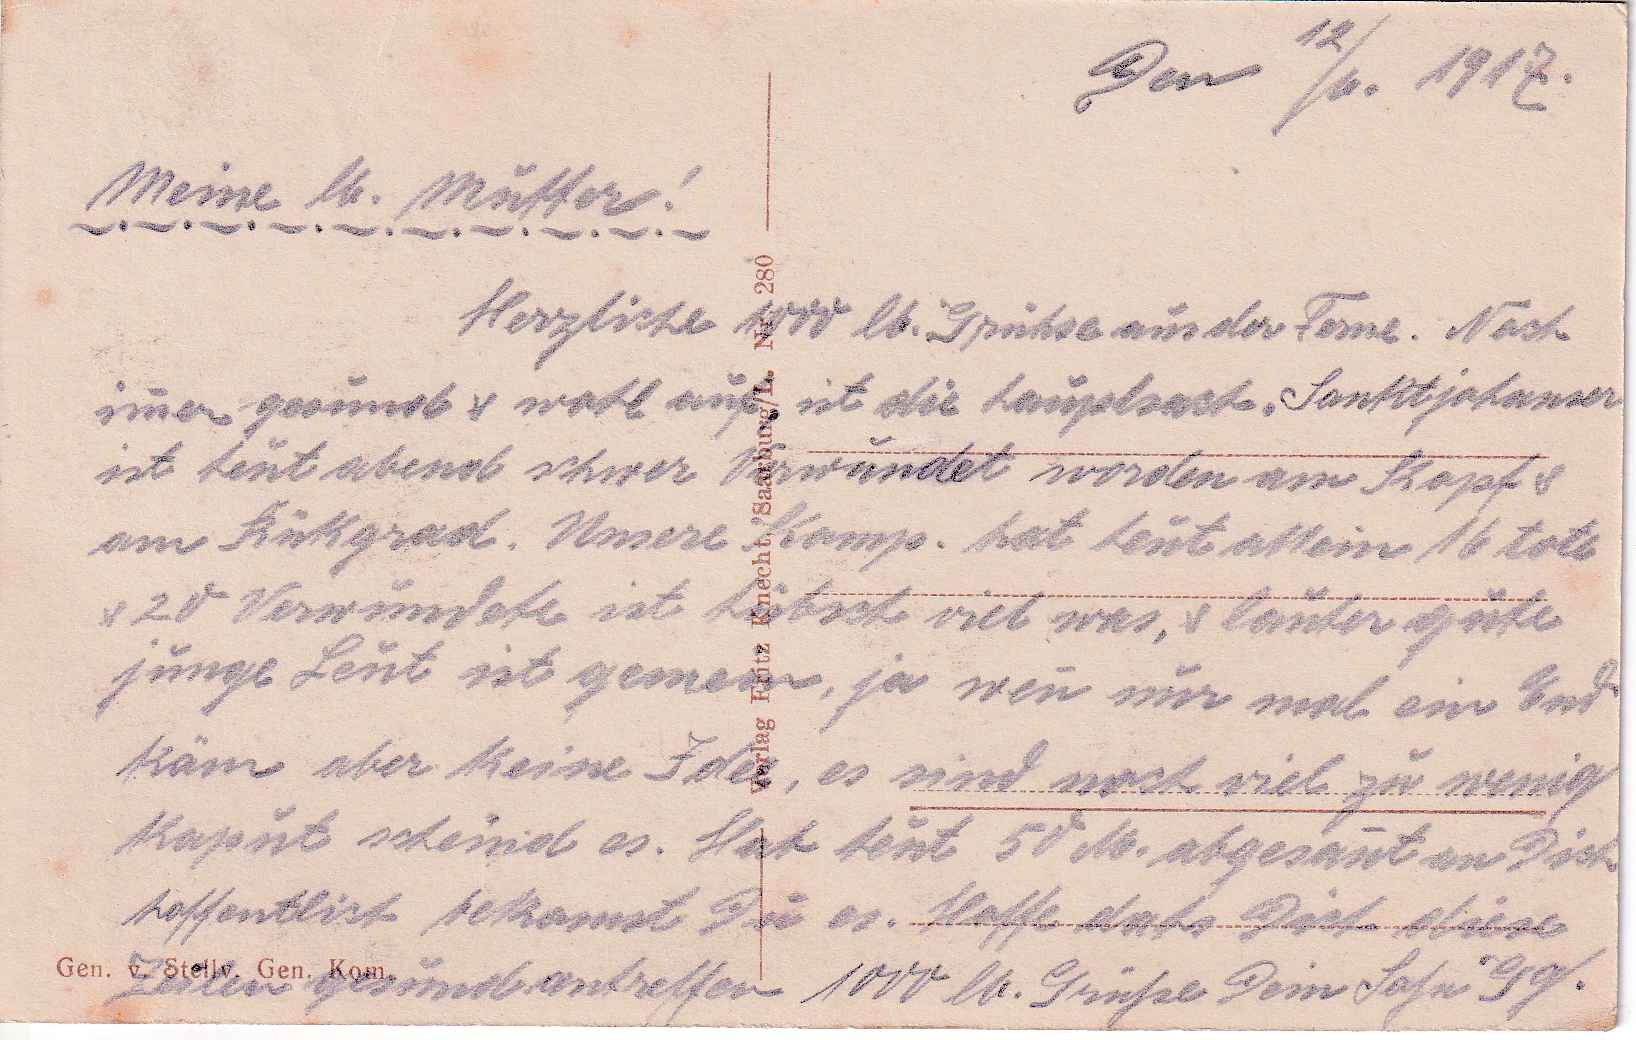 Den 12/6. 1917.
Meine lb. Mutter!
Herzliche 1000 lb. Grühse aus der Ferne. Noch
imer gesund & wohl auf, ist die hauptsach. Sanktjohanser
ist heut abend schwer Verwundet worden am Kopf &
am Rükgrad. Unsere Komp. hat heut allein 16 tote
& 20 Verwundete ist hübsch viel was, & lauter gute
junge Leut ist gemein, ja wen nur mal ein End
käm aber keine Idee, es sind noch viel zu wenig
kaput scheind es. Hab heut 50 M. abgesant an Dich
hoffentlich bekomst Du es. Hoffe dahs Dich diese
Zeilen gesund antreffen 1000 lb. Grüße Dein Sohn Gg.
Verlag Fritz Knecht, Saarburg/L. Nr. 280
Gen. v. Stellv. Gen. Kom.